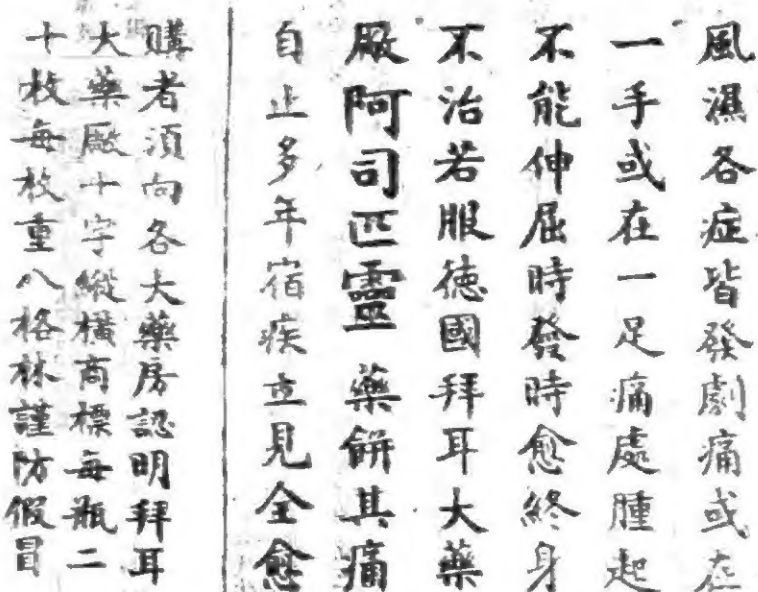 風濕各症皆發劇痛或在
一手或在一足痛處腫起
不能伸屈時發時愈終身
不治若服德國拜耳大藥
厰阿司匹靈藥餅其痛
自止多年宿疾立見全愈
購者須向各大藥房認明拜耳
大藥厰十字縱橫商標每瓶二
十枚每枚重八格林謹防假冒